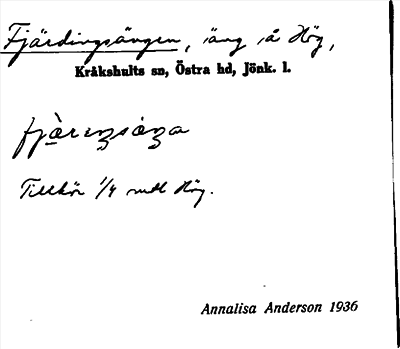 Fjärdingsängen, äng å Hög,
Kråkshults sn, Östra hd, Jönk. l.
Tillhör 1/4 mtl Hög.
Annalisa Anderson 1936